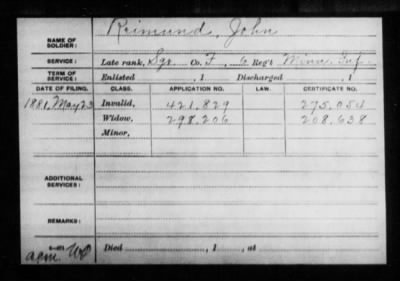 NAME OF SOLDIER: Reimund, John
SERVICE: Late rank, Sgt. Co. F, 6 Reg't Minn. Inf.
TERM OF SERVICE: Enlisted , 1 Discharged , 1
DATE OF FILING. CLASS. APPLICATION NO. LAW. CERTIFICATE NO.
1881, May 23 Invalid, 421,829 275,054
Widow, 298,206 208,638
Minor,
ADDITIONAL SERVICES:
REMARKS:
Died , 1 , at